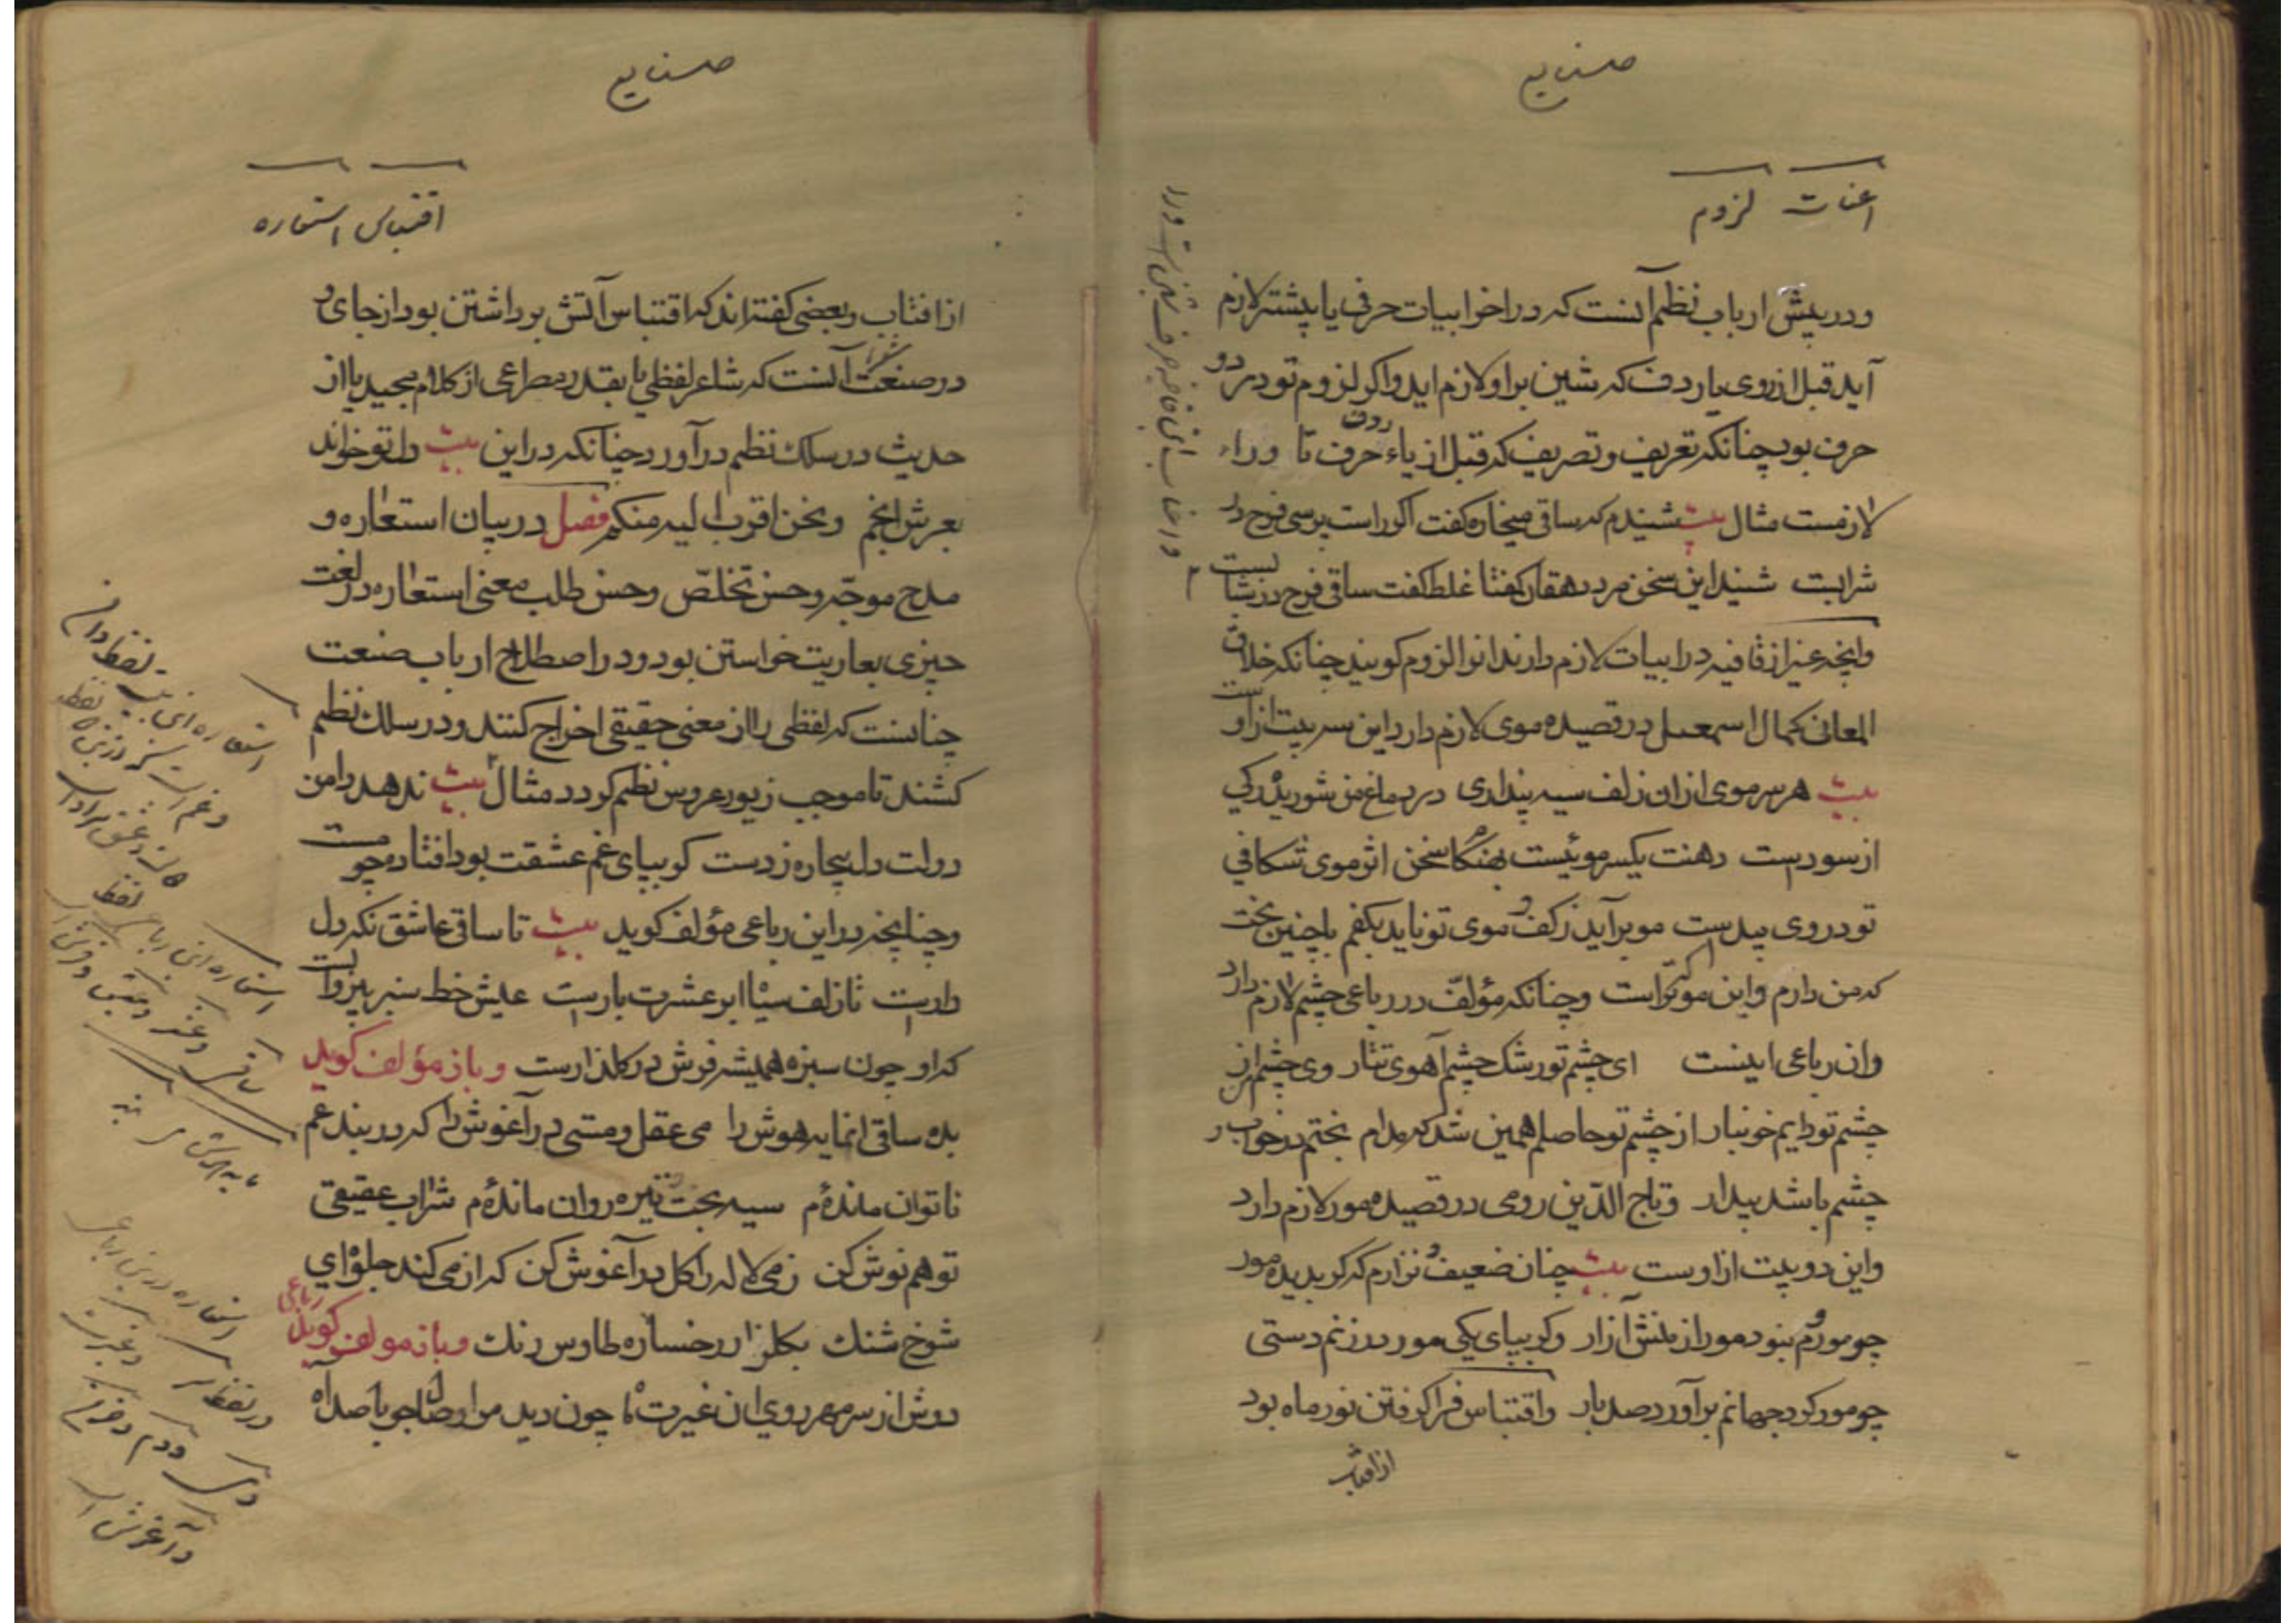 صنایع
اعنات لزوم
ودر پیش ارباب نظم آنست که در اخر ابیات حرفی یا بیشتر لازم
آید قبل از روی یا ردف که شین بر او لازم اید واکر لزوم تو در دو
حرف بود چنانکه تعریف و تصریف که قبل از یاء ردف حرف تا وراء
لازمست مثال بیت شنیدم که ساقی میخاره کفت اکر راست پرسی فرح در
شرابست شنید این سخن مرد دهقان کفتا غلط کفت ساقی فرح در نشا
وانچه غیر از قافیه در ابیات لازم دارند انرا لزوم کویند چنانکه خلاق
المعانی کمال اسمعیل در قصیده موی لازم دارد این سه بیت از اوست
بیت هر سر موی ازان زلف سیه پنداری در دماغ من شوریده رکی
از سوداست دهنت یکسر موئیست بهنکام سخن اثر موی شکافی
تو در وی پیداست مو برآید ز کف و موی تو ناید بکفم با چنین بخت
که من دارم واین مو که تراست وچنانکه مؤلف در رباعی چشم لازم دارد
وان رباعی اینست ای چشم تو رشک چشم آهوی تتار وی چشم من از
چشم تو دایم خونبار از چشم تو حاصلم همین شد که مدام بختم در خواب و
چشم باشد بیدار وتاج الدّین رومی در قصیده مور لازم دارد
واین دو بیت از اوست بیت چنان ضعیف و نزارم که کر بدیده مور
چو مور کم بنود مور از منش آزار وکر بپای یکی مور در زنم دستی
چو مور کرد جهانم برآورد صد بار واقتباس فرا کرفتن نور ماه بود
از افتاب
صنایع
اقتباس استعاره
از افتاب وبعضی کفته‌اند که اقتباس آتش برداشتن بود از جای و
در صنعت شعرا آنست که شاعر لفظی یا بقدر مصراعی از کلام مجید یا از
حدیث در سلک نظم در آورد چنانکه در این بیت دل تو خواند
بعرش انجم ونحن اقرب الیه منکم فصل در بیان استعاره و
مدح موجّه وحسن تخلّص وحسن طلب معنی استعاره در لغت
چیزی بعاریت خواستن بود ودر اصطلاح ارباب صنعت
چنانست که لفظی را از معنی حقیقی اخراج کنند ودر سلک نظم
کشند تا موجب زیور عروس نظم کردد مثال بیت ندهد دامن
دولت دل بیچاره ز دست کو بپای غم عشقت بود افتاده چو مست
وچنانچه در این رباعی مؤلف کوید بیت تا ساقی عاشق نکه دل
داراست تا زلف سیاه ابر عشرت باراست عیش خط سبز بیزوالست
که او چون سبزه همیشه فرش در کلذارست وباز مؤلف کوید
بده ساقی انمایه هوش را می عقل ومستی در آغوش را که در بند غم
ناتوان مانده‌ام سیه بخت تیره روان مانده‌ام شراب عقیقی
تو هم نوش کن ز می لاله را کل در آغوش کن که از می کند جلوه‌ای
شوخ شنک بکلزار رخساره طاوس رنک وباز مولف کوید رباعی
دوش از سر مهر روی ان غیرت ماه چون دید مرا وصال جو با صد آه
استعاره این بیت لفظ دامن
استعاره این رباعی لفظ
استعاره در این رباعی
در لفظ سر